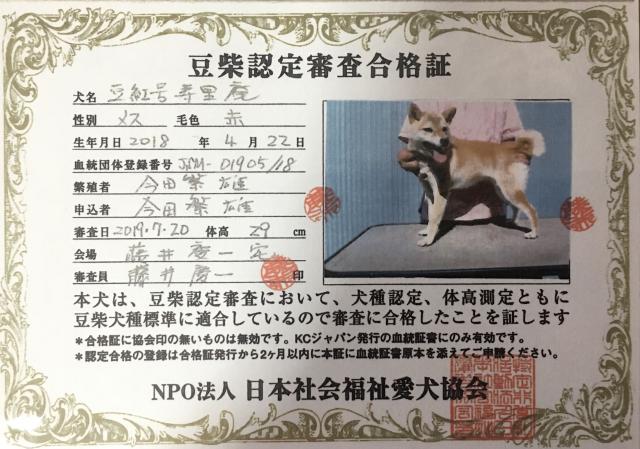 豆柴認定審査合格証
犬名 豆紅号 寿里庵
性別 メス 毛色 赤
生年月日 2018 年 4 月 22 日
血統団体登録番号 JSM-01905/18
繁殖者 今田繁雄
申込者 今田繁雄
審査日 2019.7.20 体高 29 cm
会場 藤井慶一宅
審査員 藤井慶一 印
本犬は、豆柴認定審査において、犬種認定、体高測定ともに
豆柴犬種標準に適合しているので審査に合格したことを証します
*合格証に協会印の無いものは無効です。KCジャパン発行の血統証書にのみ有効です。
*認定合格の登録は合格証発行から2ヶ月以内に本証に血統証書原本を添えてご申請ください。
NPO法人 日本社会福祉愛犬協会